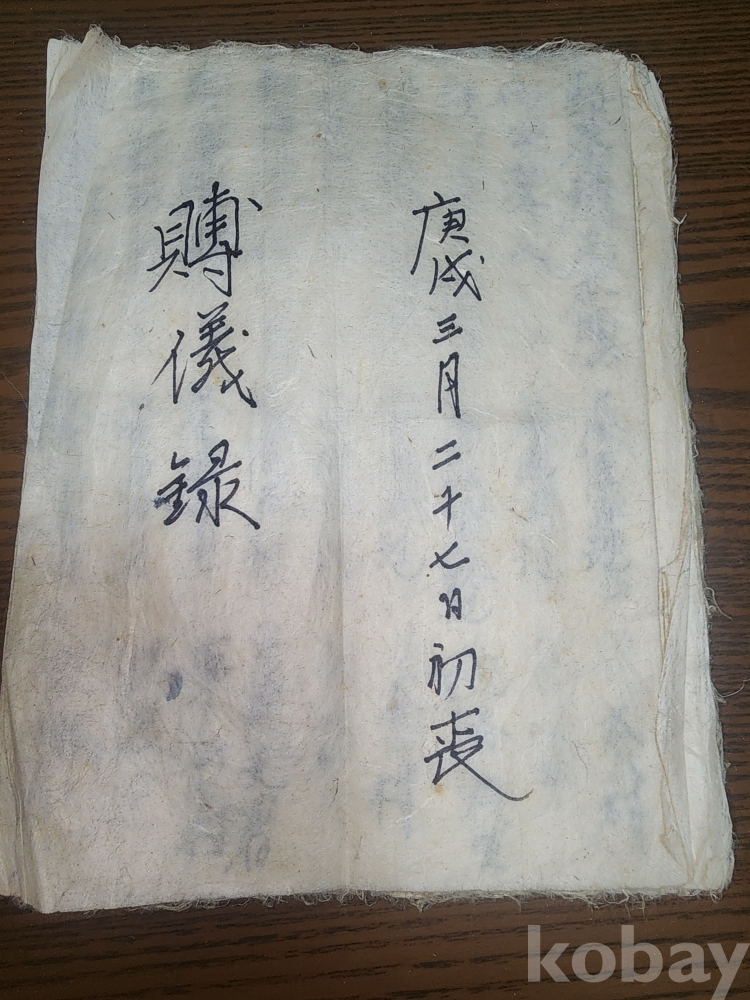 庚戌三月二十七日初喪
賻儀錄
kobay